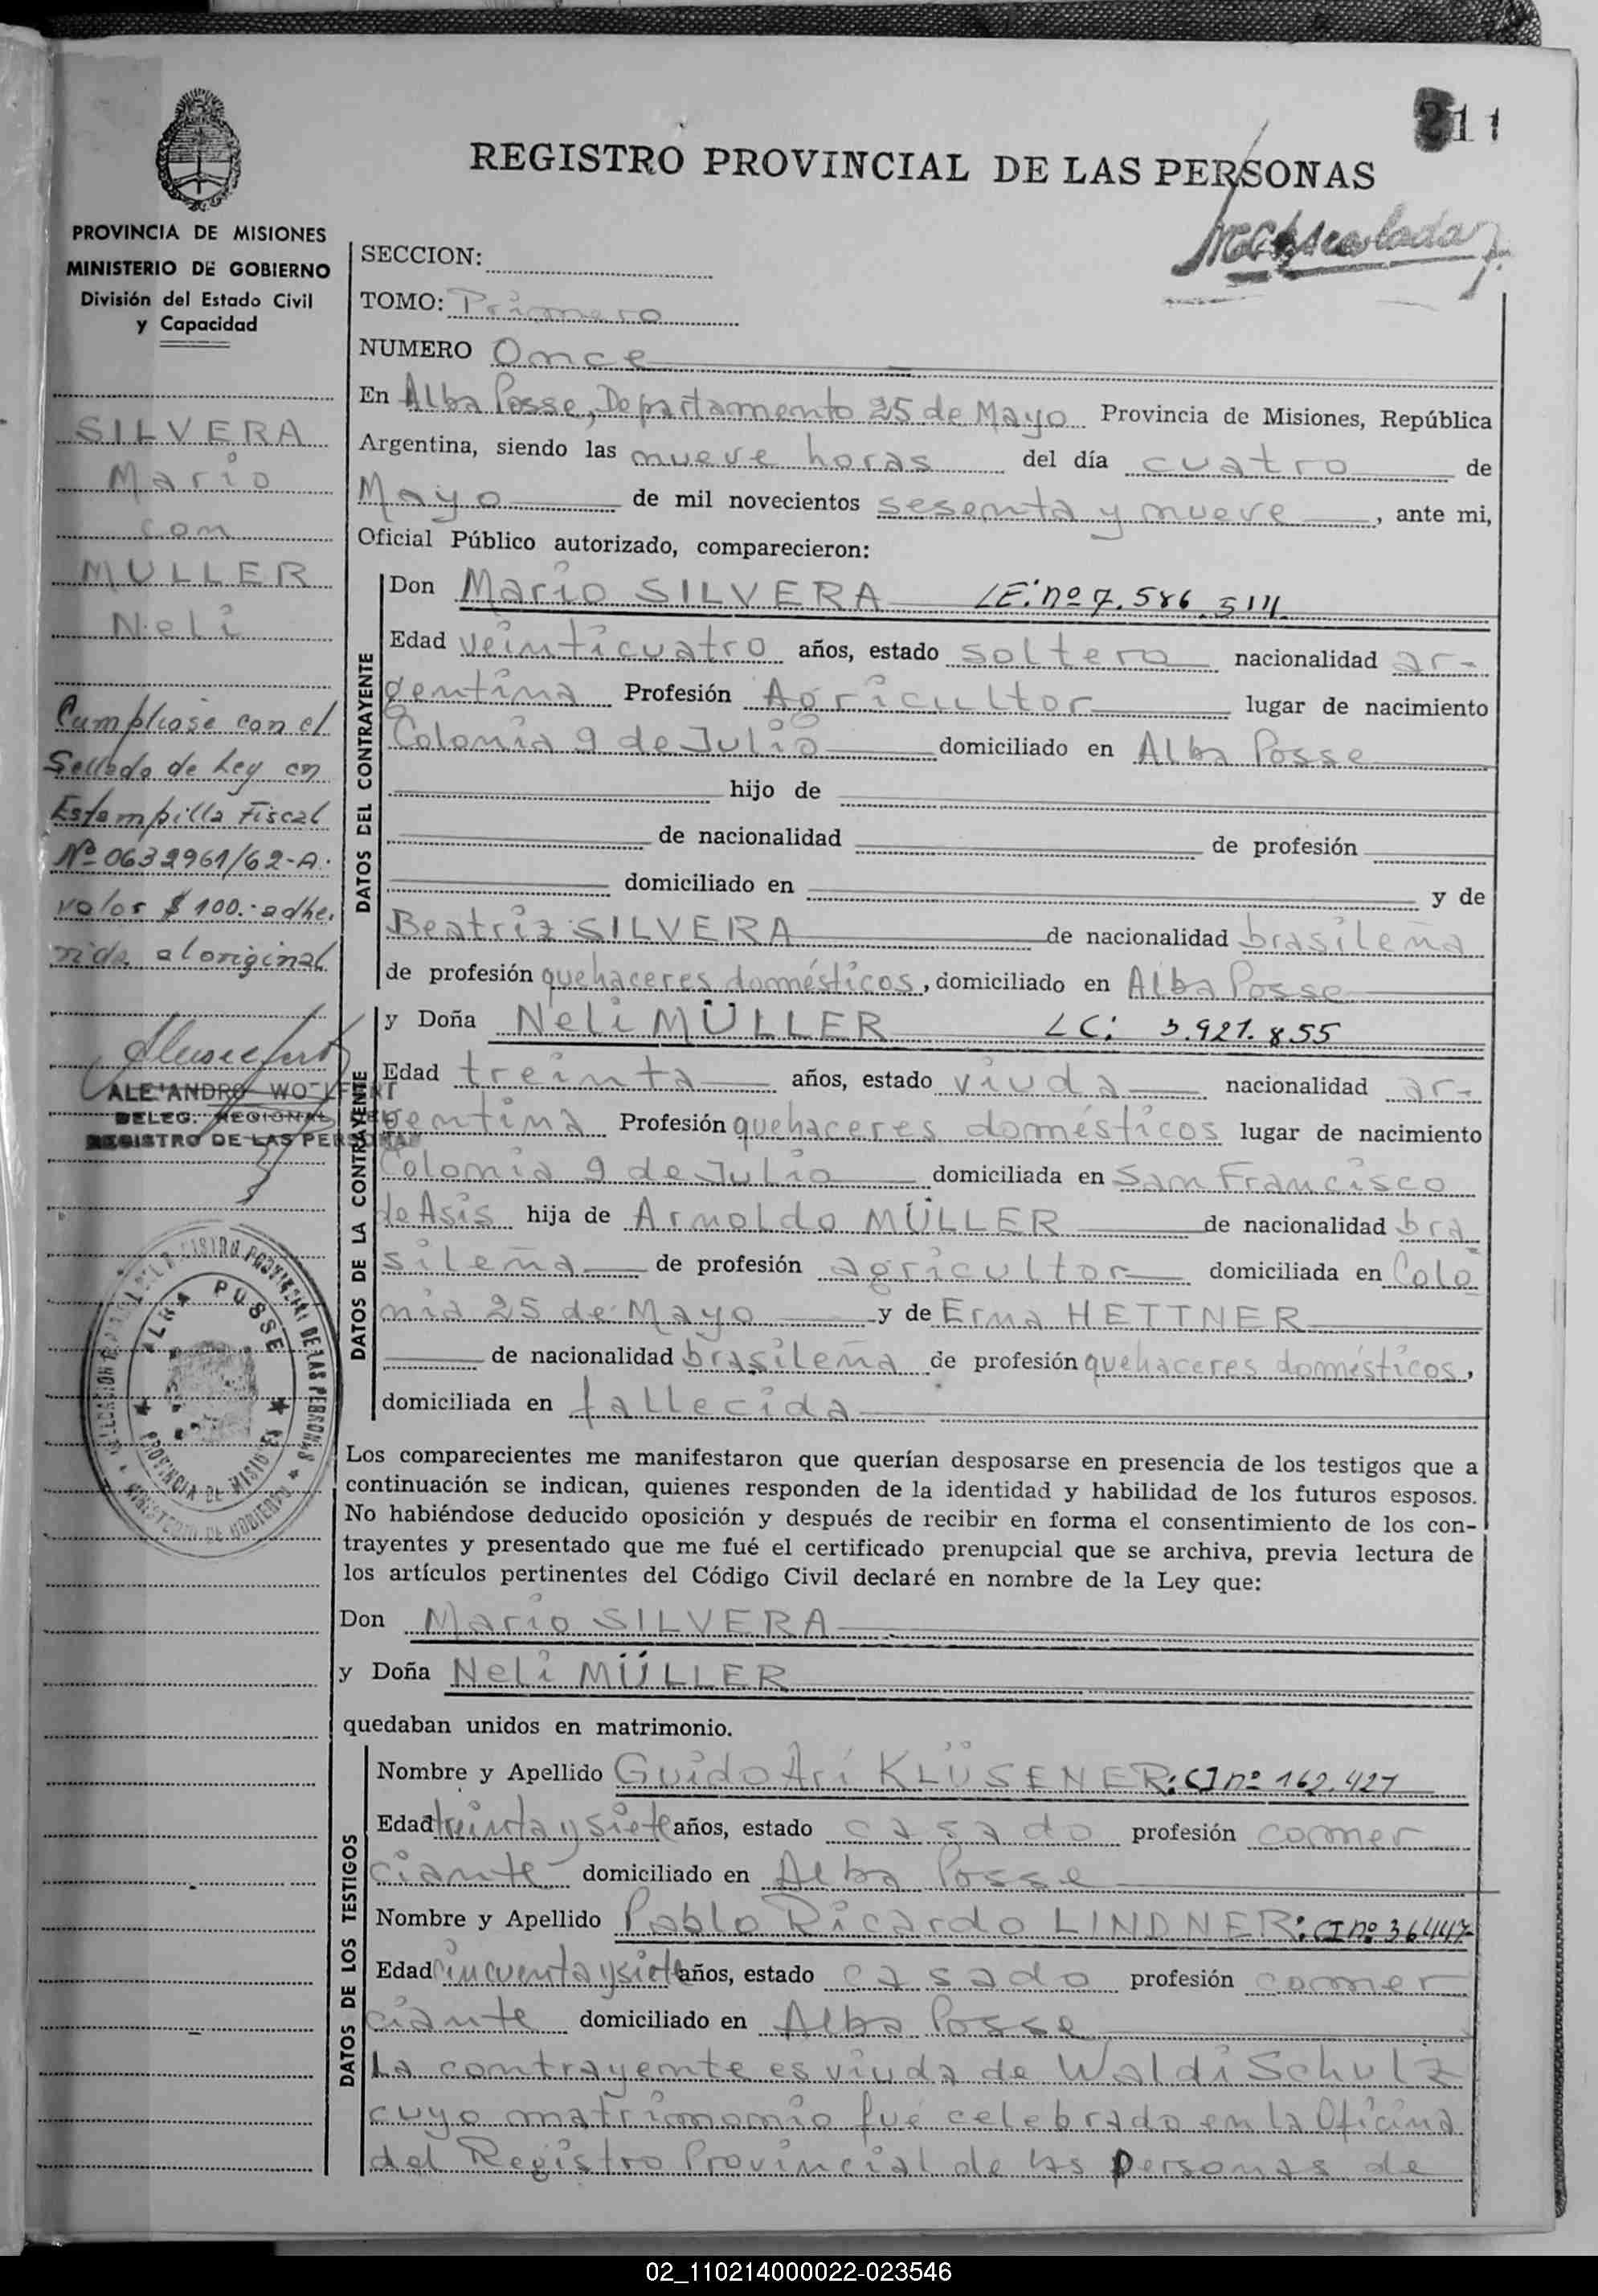 11
REGISTRO PROVINCIAL DE LAS PERSONAS
PROVINCIA DE MISIONES
MINISTERIO DE GOBIERNO
División del Estado Civil
y Capacidad
SILVERA
Mario
con
MULLER
Neli
Cumpliose con el
Sellado de Ley en
Estampilla Fiscal
Nº 0632961/62-A.
valor $ 100.- adhe,
rida al original
DELEG. REGIONAL
REGISTRO DE LAS PERSONAS
ALBA POSSE
PROVINCIA DE MISIONES
SECCION:
TOMO: Primero
NUMERO Once
En Alba Posse, Departamento 25 de Mayo Provincia de Misiones, República
Argentina, siendo las nueve horas del día cuatro de
Mayo de mil novecientos sesenta y nueve, ante mi,
Oficial Público autorizado, comparecieron:
DATOS DEL CONTRAYENTE
Don Mario SILVERA LE: nº 7.586.514
Edad veinticuatro años, estado soltero nacionalidad ar-
gentina Profesión Agricultor lugar de nacimiento
Colonia 9 de Julio domiciliado en Alba Posse
hijo de
de nacionalidad de profesión
domiciliado en y de
Beatriz SILVERA de nacionalidad brasileña
de profesión quehaceres domésticos, domiciliado en Alba Posse
DATOS DE LA CONTRAYENTE
y Doña Neli MÜLLER LC: 3.921.855
Edad treinta años, estado viuda nacionalidad ar-
gentina Profesión quehaceres domésticos lugar de nacimiento
Colonia 9 de Julio domiciliada en San Francisco
de Asis hija de Arnoldo MÜLLER de nacionalidad bra
sileña de profesión agricultor domiciliada en Colo
nia 25 de Mayo y de Erma HETTNER
de nacionalidad brasileña de profesión quehaceres domésticos,
domiciliada en fallecida
Los comparecientes me manifestaron que querían desposarse en presencia de los testigos que a
continuación se indican, quienes responden de la identidad y habilidad de los futuros esposos.
No habiéndose deducido oposición y después de recibir en forma el consentimiento de los con-
trayentes y presentado que me fué el certificado prenupcial que se archiva, previa lectura de
los artículos pertinentes del Código Civil declaré en nombre de la Ley que:
Don Mario SILVERA
y Doña Neli MÜLLER
quedaban unidos en matrimonio.
DATOS DE LOS TESTIGOS
Nombre y Apellido Guido Ari KLÜSENER: CI nº 162.427
Edad treinta y siete años, estado casado profesión comer
ciante domiciliado en Alba Posse
Nombre y Apellido Pablo Ricardo LINDNER: CI nº 36447
Edad cincuenta y siete años, estado casado profesión comer
ciante domiciliado en Alba Posse
La contrayente es viuda de Waldi Schulz
cuyo matrimonio fué celebrado en la Oficina
del Registro Provincial de las personas de
02_110214000022-023546